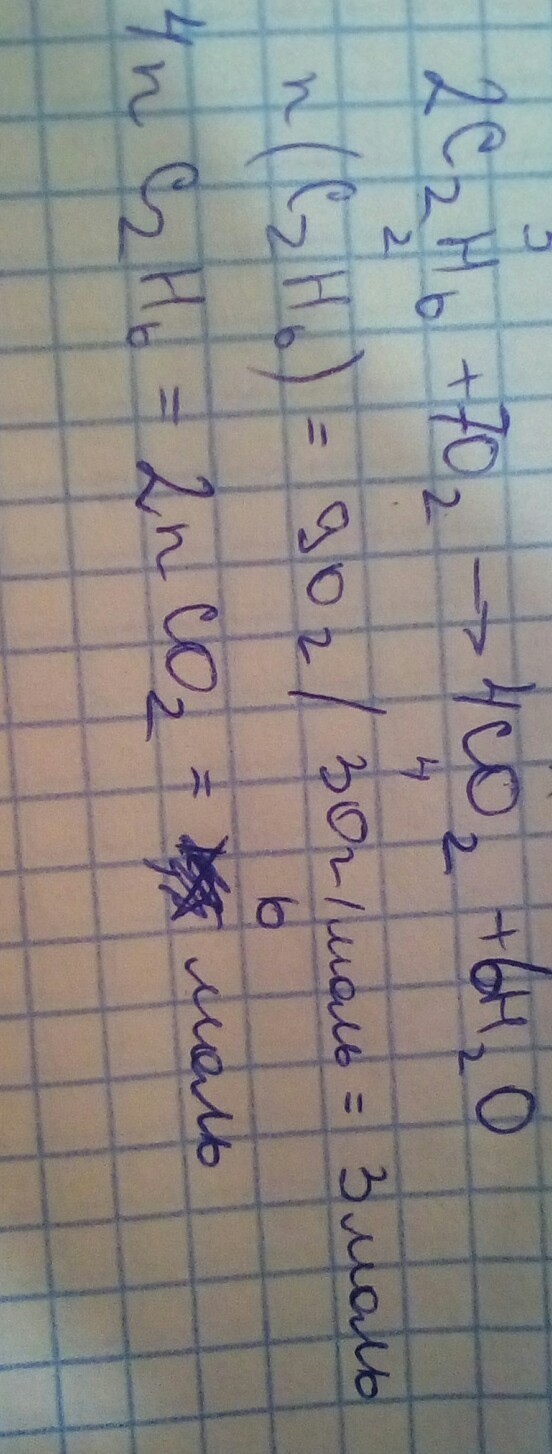 3
2C₂H₆ + 7O₂ → 4CO₂ + 6H₂O
2 4
n(C₂H₆) = 90г/30г/моль = 3моль
6
4nC₂H₆ = 2nCO₂ = моль